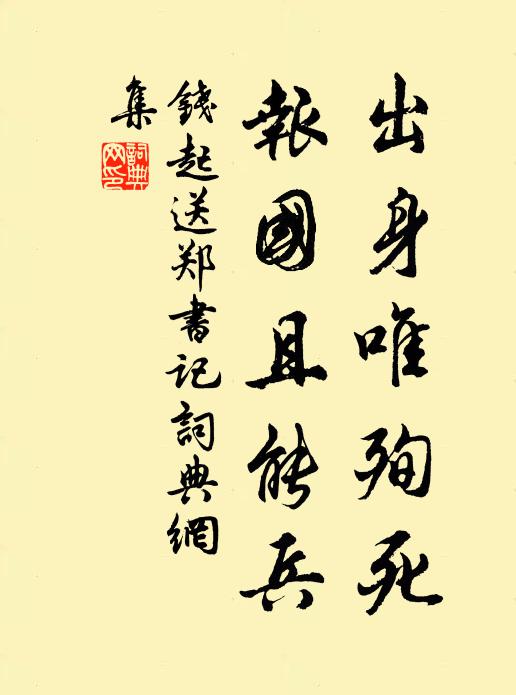 出身唯殉死
報國且能兵
錢起送郑書记詞典網
集
詞典
网印